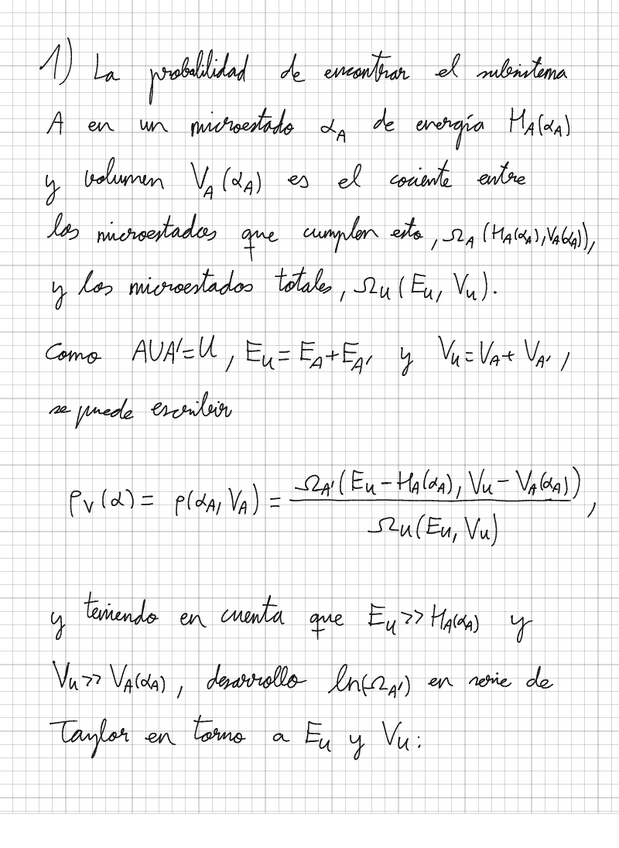 1) La probabilidad de encontrar el subsistema
A en un microestado α_A de energía H_A(α_A)
y volumen V_A(α_A) es el cociente entre
los microestados que cumplen esto, Ω_A(H_A(α_A),V_A(α_A)),
y los microestados totales, Ω_U(E_U, V_U).
Como AUA'=U, E_U=E_A+E_A' y V_U=V_A+V_A',
se puede escribir
ρ_V(α) = ρ(α_A, V_A) = Ω_A'(E_U-H_A(α_A), V_U-V_A(α_A)) / Ω_U(E_U, V_U),
y teniendo en cuenta que E_U>>H_A(α_A) y
V_U>>V_A(α_A), desarrollo ln(Ω_A') en serie de
Taylor en torno a E_U y V_U: